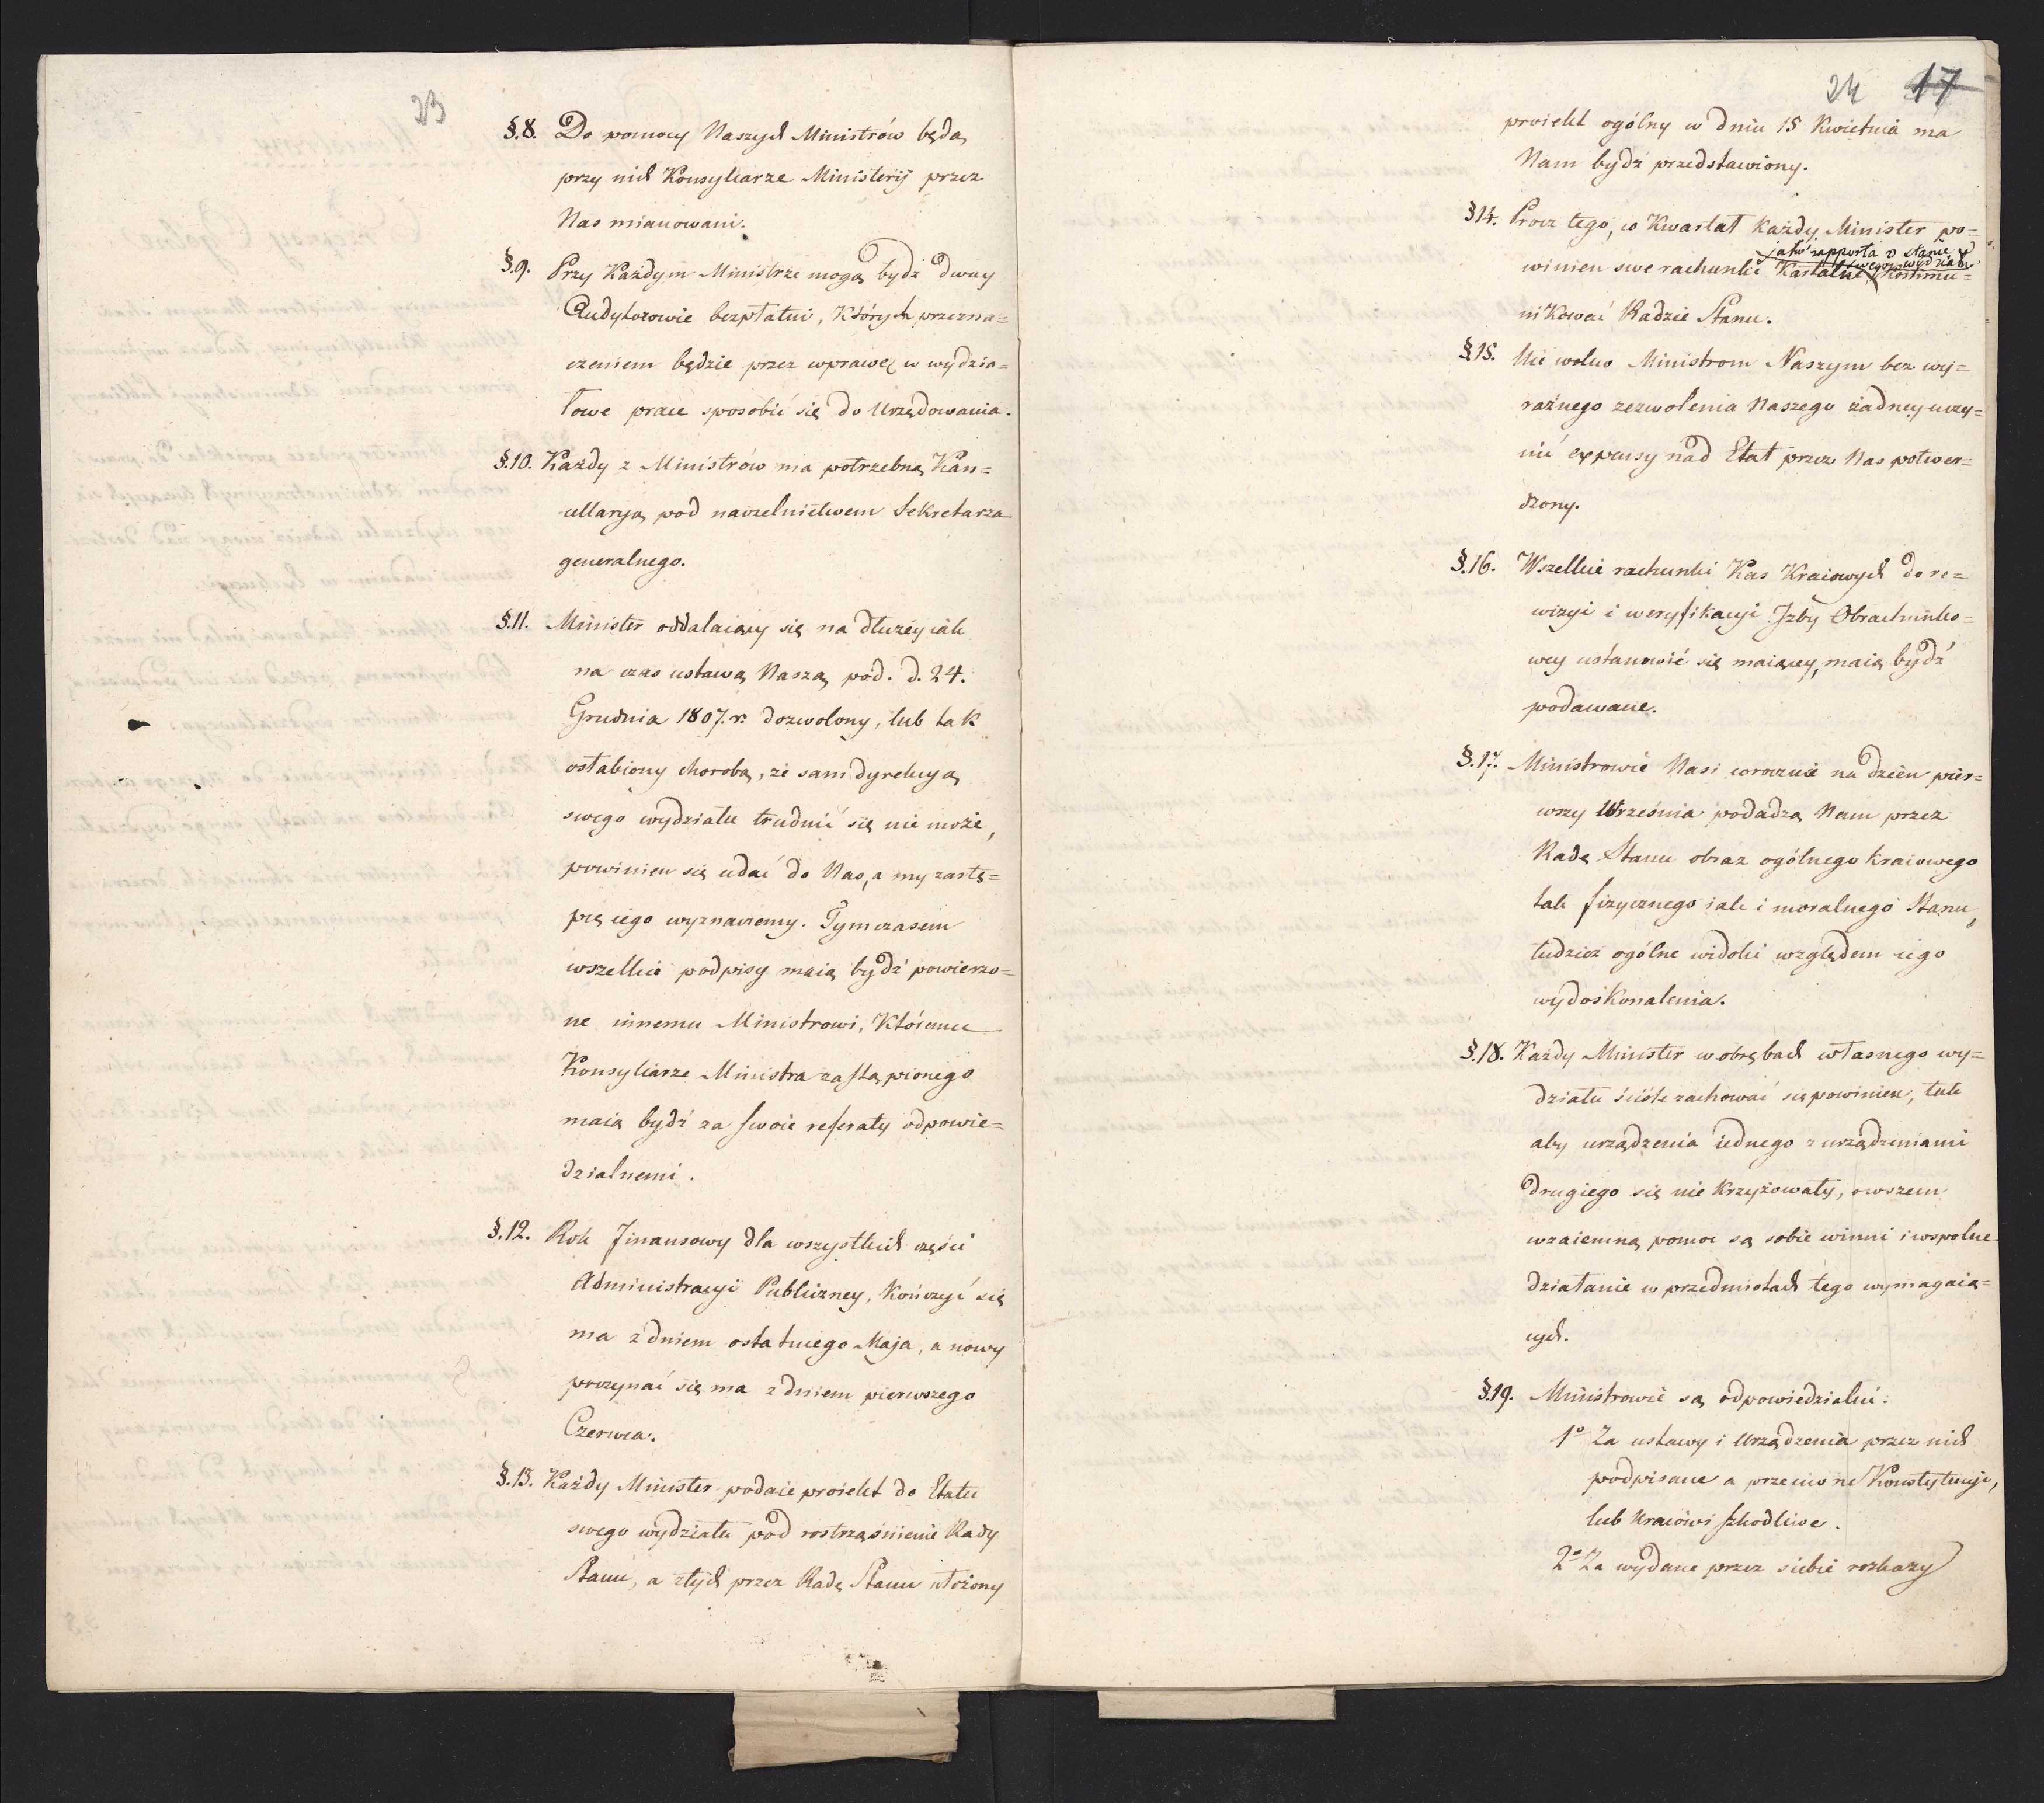 23
§.8. Do pomocy Naszych Ministrów będą
przy nich Konsyliarze Ministerij przez
Nas mianowani.
§.9. Przy Każdym Ministrze mogą bydź dway
Audytorowie bezpłatni, Których przezna=
czeniem będzie przez wprawę w wydzia=
łowe prace sposobić się do Urzędowania.
§.10. Każdy z Ministrów ma potrzebną Kan=
cellaryą pod naczelnictwem Sekretarza
generalnego.
§.11. Minister oddalaiący się na dłużéy iak
na czas ustawą Naszą pod. d. 24.
Grudnia 1807. r. dozwolony, lub tak
osłabiony chorobą, że sam dyrekcyą
swego wydziału trudnić się nie może,
powinien się udać do Nas, a my zastę=
pcę iego wyznaczemy. Tymczasem
wszelkie podpisy maią bydź powierzo=
ne innemu Ministrowi, Któremu
Konsyliarze Ministra zastąpionego
maią bydź za swoie referaty odpowie=
dzialnemi.
§.12. Rok finansowy dla wszystkich części
Administracyi Publiczney, Kończyć się
ma z dniem ostatniego Maja, a nowy
poczynać się ma z dniem pierwszego
Czerwca.
§.13. Każdy Minister podaie proiekt do Etatu
swego wydziału pod rostrząśnienie Rady
Stanu, a z tych przez Radę Stanu ułożony
24 17
proiekt ogólny w dniu 15 Kwietnia ma
Nam bydź przedstawiony.
§14. Procz tego, co Kwartał Każdy Minister po=
jako rapporta o stanie
swego wydziału
winien swe rachunki Kartalne Kommu=
nikować Radzie Stanu.
§.15. Nie wolno Ministrom Naszym bez wy=
raźnego zezwolenia Naszego żadney uczy=
nić expensy nad Etat przez Nas potwier=
dzony.
§.16. Wszelkie rachunki Kas Kraiowych do re=
wizyi i weryfikacyi Jzby Obrachunko=
wey ustanowić się maiącey, maią bydź
podawane.
§.17. Ministrowie Nasi corocznie na dzień pier=
wszy Września podadzą Nam przez
Radę Stanu obraz ogólnego kraiowego
tak fizycznego iak i moralnego Stanu,
tudzież ogólne widoki względem iego
wydoskonalenia.
§.18. Każdy Minister w obrębach własnego wy=
działu ściśle zachować się powinien, tak
aby urządzenia iednego z urządzeniami
drugiego się nie Krzyżowały, owszem
wzaiemną pomoc są sobie winni i wspolne
działanie w przedmiotach tego wymagaią=
cych.
§.19. Ministrowie są odpowiedzialni:
1º Za ustawy i Urządzenia przez nich
podpisane a przeciwne Konstytucyi,
lub Kraiowi szkodliwe.
2º Za wydane przez siebie rozkazy